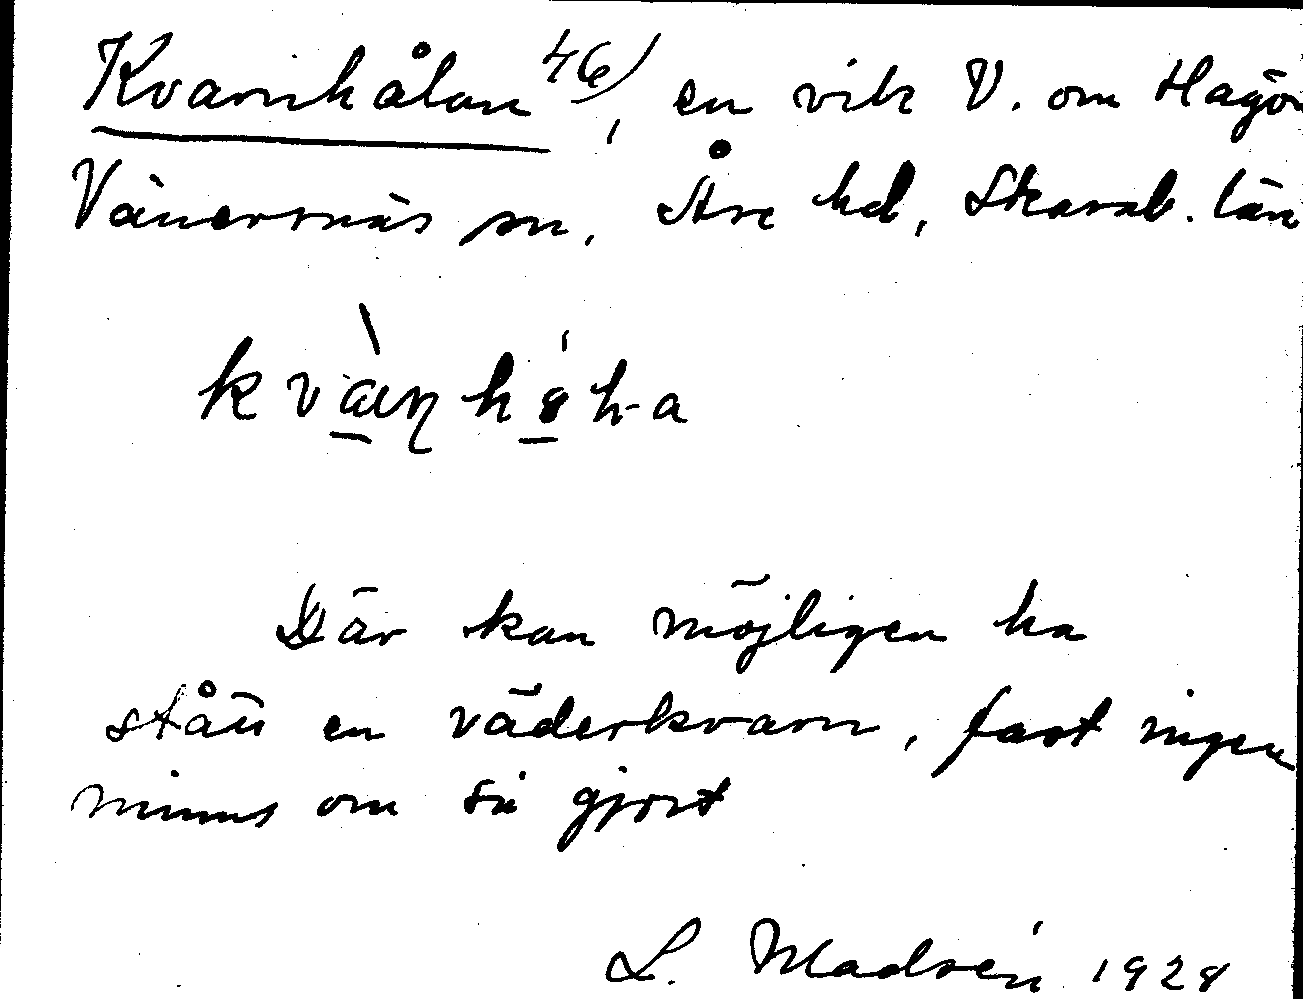 Kvarnhålan 46), en vik V. om Hagön
Vänersnäs sn, Åse hd, Skarab. län
Där kan möjligen ha
stått en väderkvarn, fast ingen
minns om så gjort
L. Madsén 1928